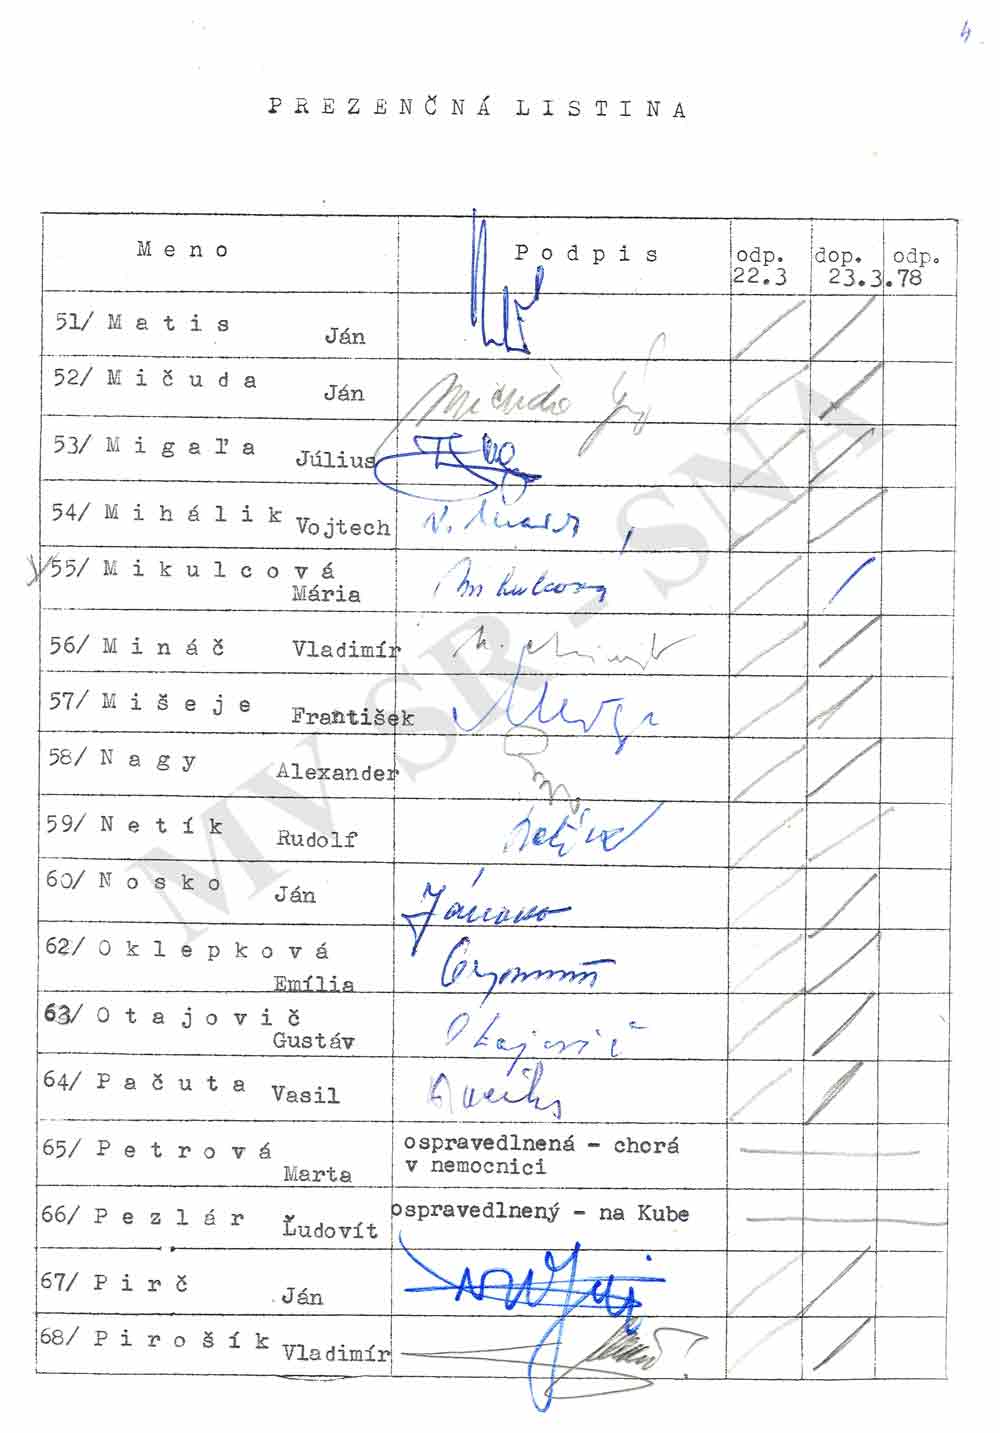 4
PREZENČNÁ LISTINA
Meno Podpis odp. dop. odp.
22.3 23.3.78
51/ Matis Ján
52/ Mičuda Ján
Mičuda
53/ Migaľa Július
54/ Mihálik Vojtech
55/ Mikulcová
Mária
Mikulcová
56/ Mináč Vladimír
57/ Mišeje František
58/ Nagy Alexander
59/ Netík Rudolf
60/ Nosko Ján
62/ Oklepková
Emília
63/ Otajovič
Gustáv
Otajovič
64/ Pačuta Vasil
65/ Petrová
Marta
ospravedlnená - chorá
v nemocnici
66/ Pezlár Ľudovít
ospravedlnený - na Kube
67/ Pirč Ján
68/ Pirošík Vladimír
MV SR - SNA